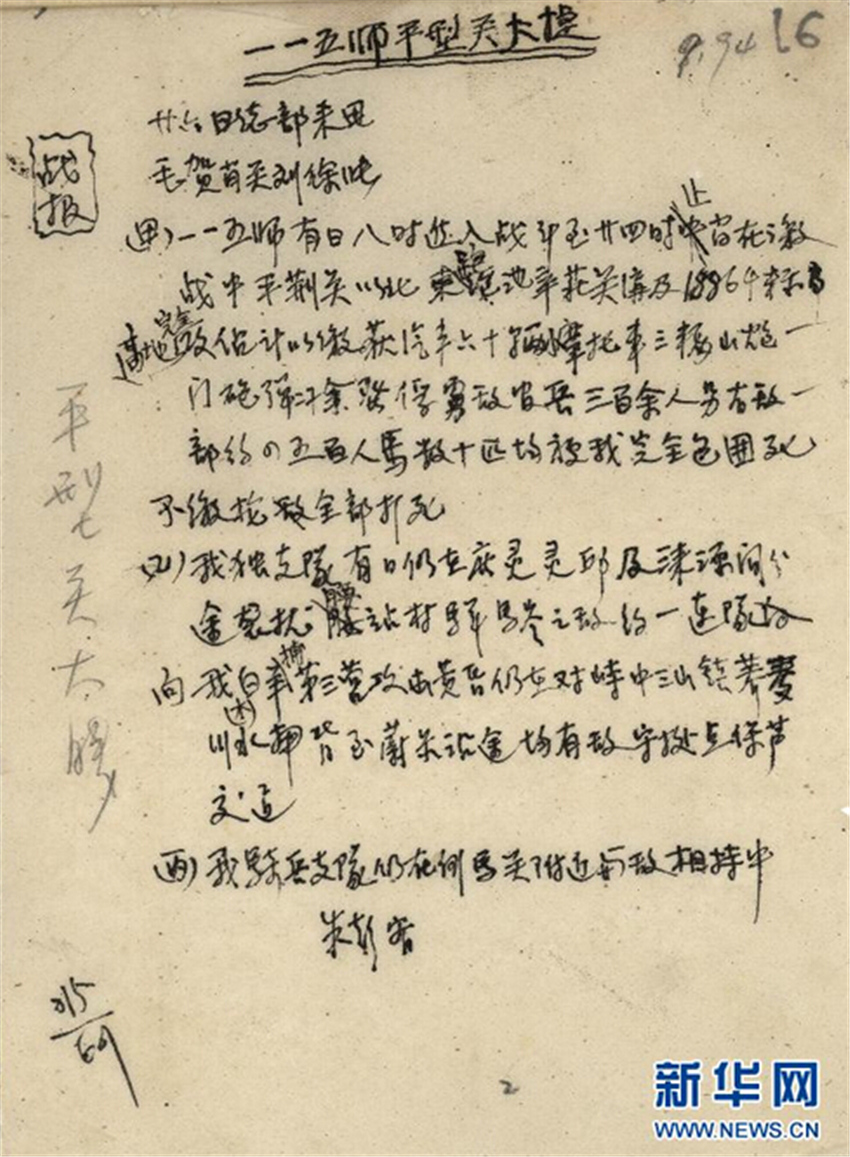 一一五师平型关大捷
9.94 16
战报
廿六日总部来电
毛贺肖关刘徐此
(甲)一一五师有日八时进入战斗至廿四时止尚在激
战中平荆关以北东跑池辛庄关沟及1886.4东
高地完全 估计以缴获汽车六十辆摩托车三辆山炮一
门炮弹二千余 俘虏敌官兵三百余人另有敌一
部约四五百人马数十匹均被我完全包围死
不缴枪故全部打死
(乙)我独支队有日仍在广灵灵邱及涞源间分
途袭扰腰站村 之敌约一连队
向我 第三营攻击 仍在对峙中三山镇
川 皆至蔚 沿途均有敌守据点保护
交通
(丙)我骑兵支队仍在倒马关附近与敌相持中
朱彭
平型关大胜
2
新华网
WWW.NEWS.CN